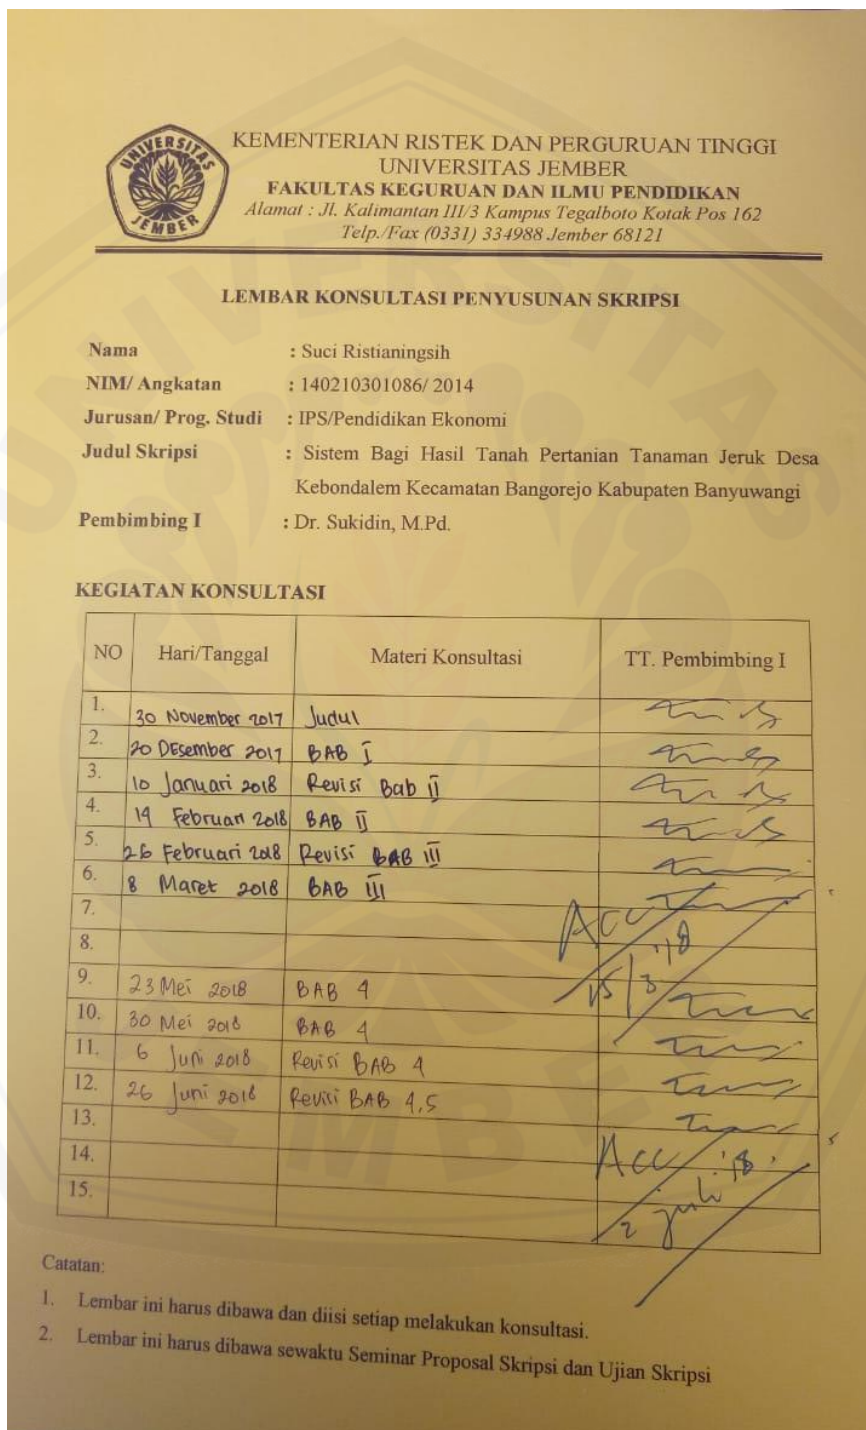 UNIVERSITAS
JEMBER
KEMENTERIAN RISTEK DAN PERGURUAN TINGGI
UNIVERSITAS JEMBER
FAKULTAS KEGURUAN DAN ILMU PENDIDIKAN
Alamat : Jl. Kalimantan III/3 Kampus Tegalboto Kotak Pos 162
Telp./Fax (0331) 334988 Jember 68121
LEMBAR KONSULTASI PENYUSUNAN SKRIPSI
Nama : Suci Ristianingsih
NIM/ Angkatan : 140210301086/ 2014
Jurusan/ Prog. Studi : IPS/Pendidikan Ekonomi
Judul Skripsi : Sistem Bagi Hasil Tanah Pertanian Tanaman Jeruk Desa
Kebondalem Kecamatan Bangorejo Kabupaten Banyuwangi
Pembimbing I : Dr. Sukidin, M.Pd.
KEGIATAN KONSULTASI
NO Hari/Tanggal Materi Konsultasi TT. Pembimbing I
1. 30 November 2017 Judul
2. 20 DEsember 2017 BAB I
3. 10 Januari 2018 Revisi Bab II
4. 19 Februari 2018 BAB II
5. 26 Februari 2018 Revisi BAB III
6. 8 Maret 2018 BAB III
7. ACC
8. 15/3 '18
9. 23 Mei 2018 BAB 4
10. 30 Mei 2018 BAB 4
11. 6 Juni 2018 Revisi BAB 4
12. 26 Juni 2018 Revisi BAB 4,5
13.
14. Acc
15. 2 juli '18
Catatan:
1. Lembar ini harus dibawa dan diisi setiap melakukan konsultasi.
2. Lembar ini harus dibawa sewaktu Seminar Proposal Skripsi dan Ujian Skripsi